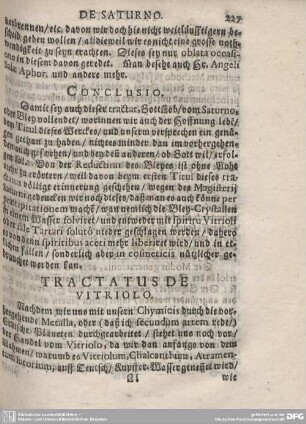 DE SATURNO. 227
verbrennen / etc. davon wir doch hie nicht weitläufftigern be-
scheid geben wollen / alldieweil wir es nicht eine grosse noth-
wendigkeit zu seyn erachten. Dieses sey nur oblata occasi-
one in diesem davon geredet. Man besehe auch Hr. Angeli
Salæ Aphor. und andere mehr.
CONCLUSIO.
Damit sey auch dieser tractat, Gott Lob, vom Saturno,
oder Bley vollendet / worinnen wir auch der Hoffnung lebē /
dem Titul dieses Werckes / und unserm versprechen ein genü-
gen gethan zu haben /
von der Reduction des Bleyes ist ohne Noht
zu erörtern / weil davon beym ersten Titul dieses tra-
erinnerung geschehen / wegen des Magisterij
wir noch dieses / daß man es auch könne per
macht / wan nemlich die Bley-Crystallen
in einem Wasser solviret / und entweder mit spiritu Vitrioli
oder sale Tartari soluto nieder geschlagen werden / dahero
von spiritibus aceti mehr liberiret wird / und in et-
lichen fällen / sonderlich aber in cosmeticis nützlicher ge-
brauchet werden kan.
TRACTATUS DE
VITRIOLO.
Nachdem wir uns mit unsern Chymicis durch die vor-
hergehende Metalla, oder / daß ich secundum artem rede /
Chymische Planeten durchgearbeitet / stehet uns noch vor /
der Handel vom Vitriolo, da wir dan anfangs von dem
Nahmen / warumb es Vitriolum, Chalcanthum, Atramen-
tum sutorium, auff Teutsch / Kupffer-Wasser genennet wird /
wie